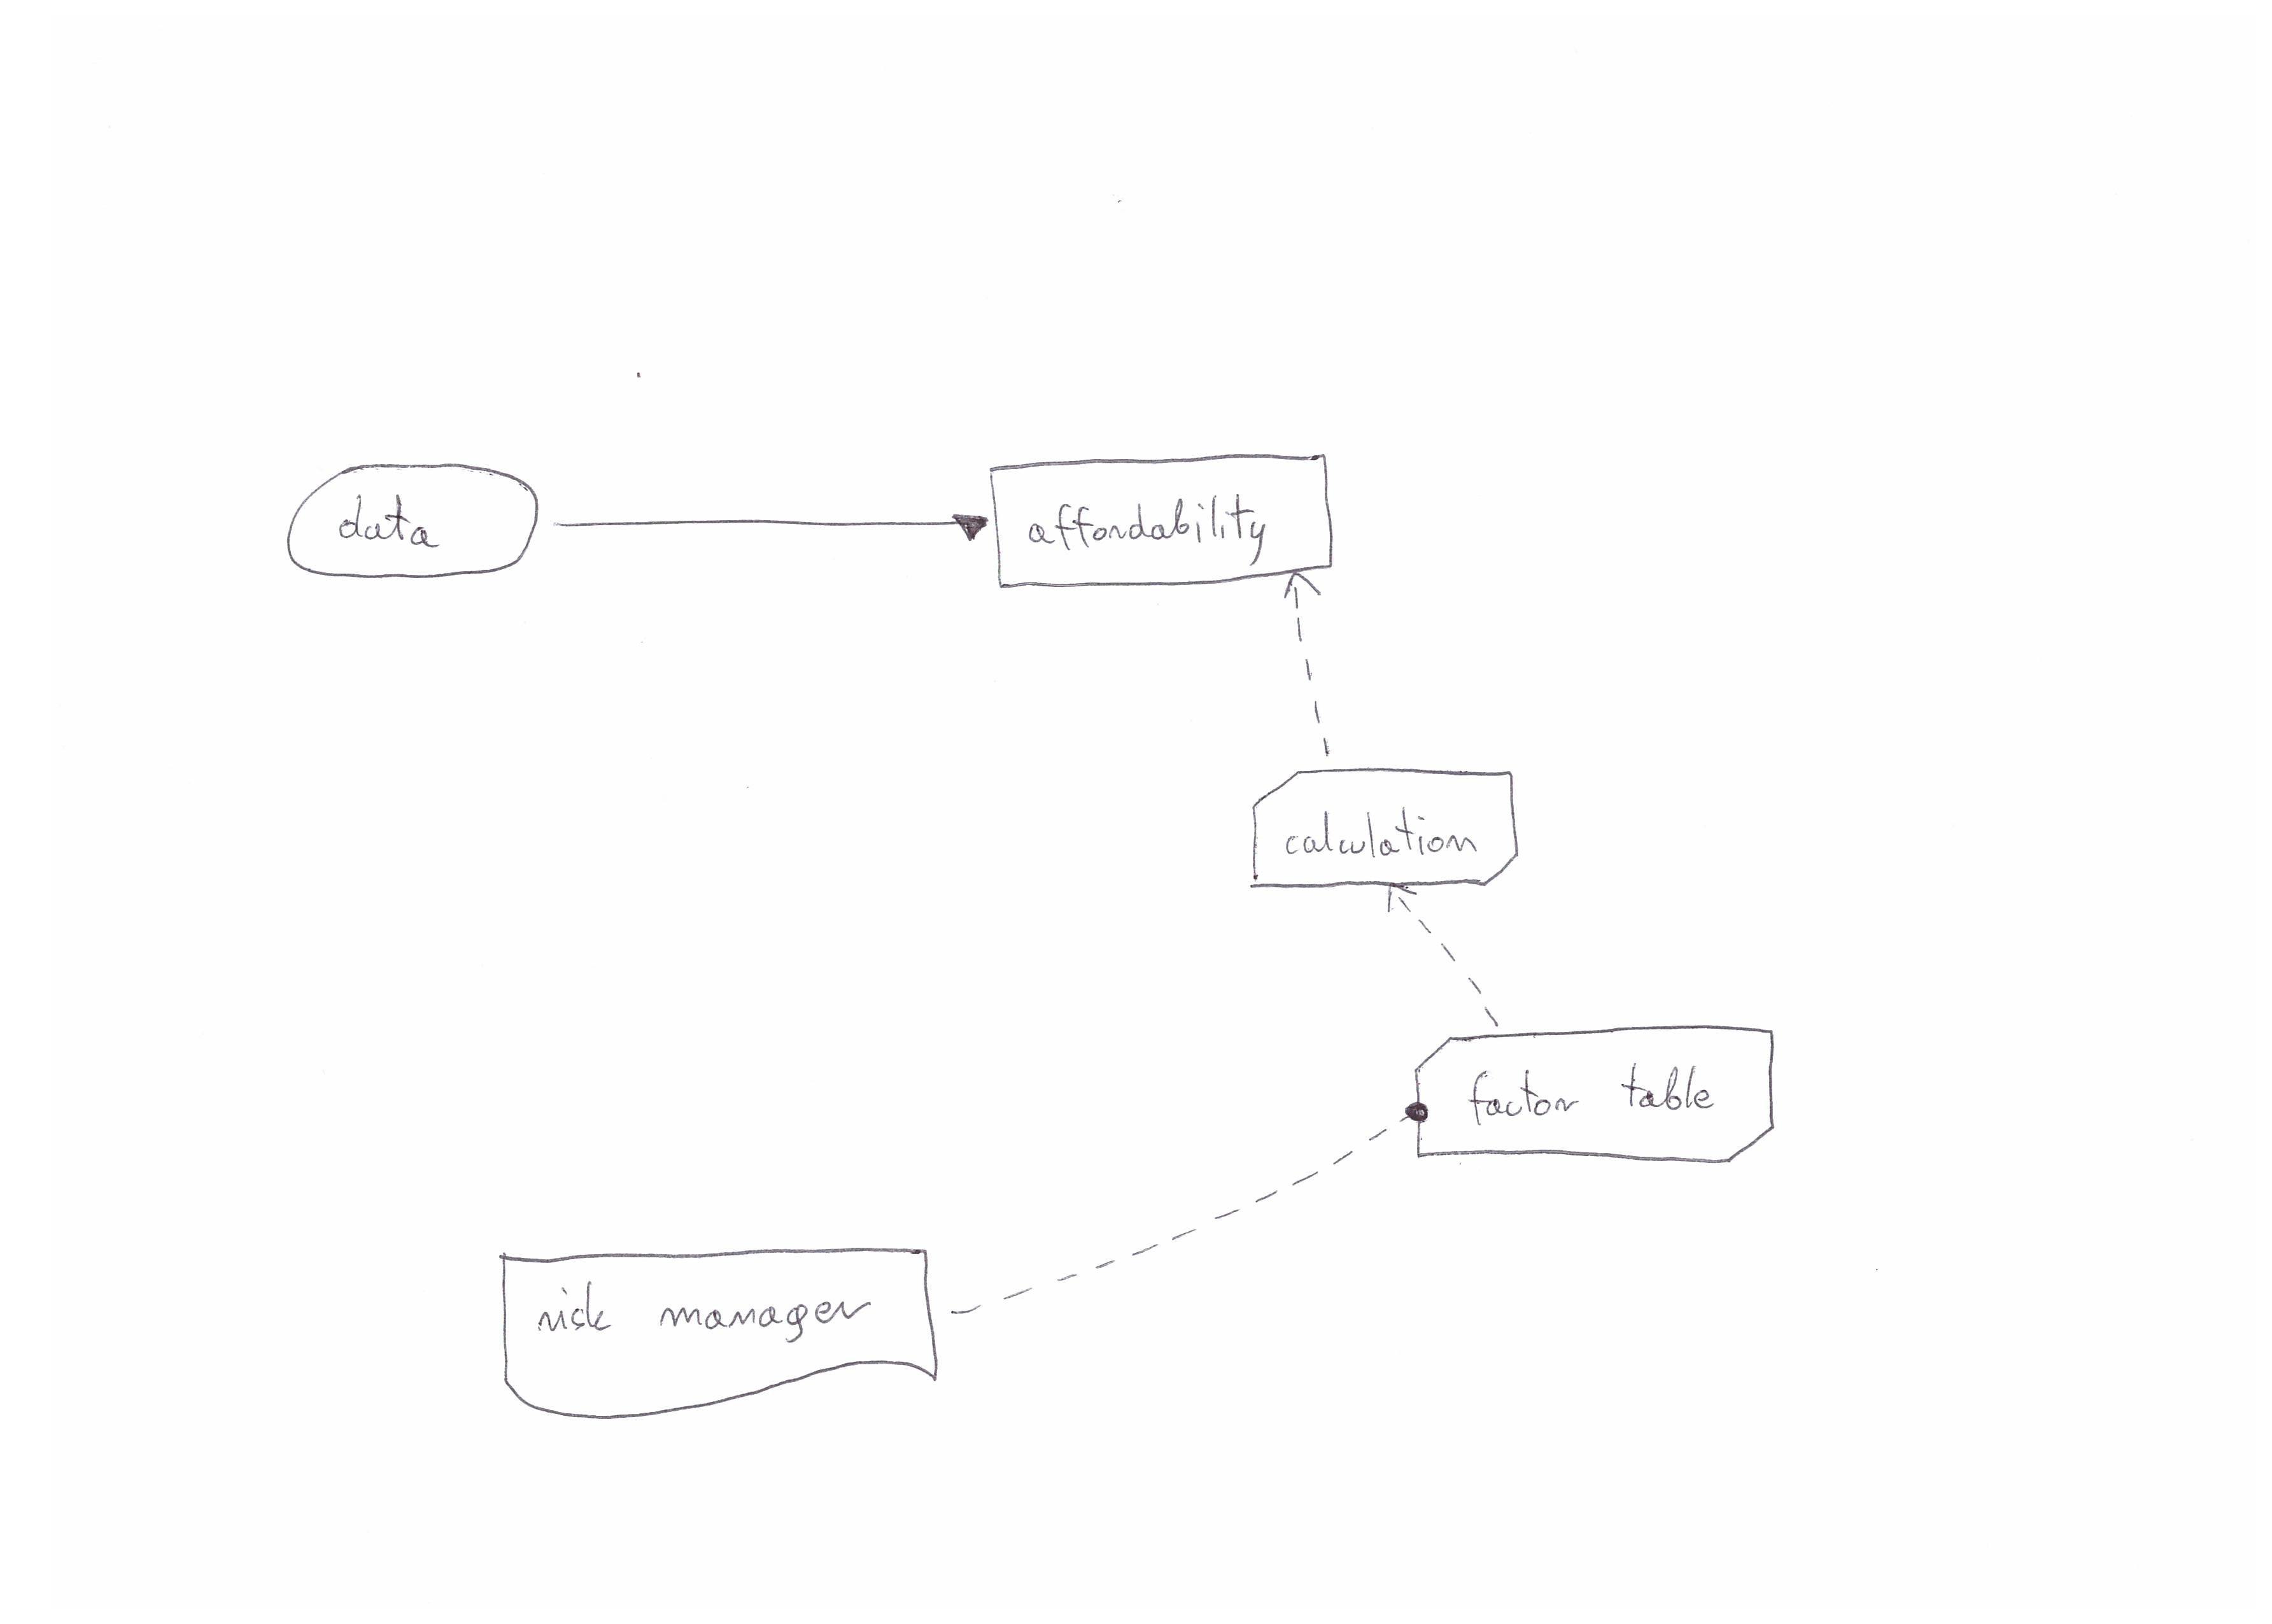 data
affordability
calculation
factor table
risk manager